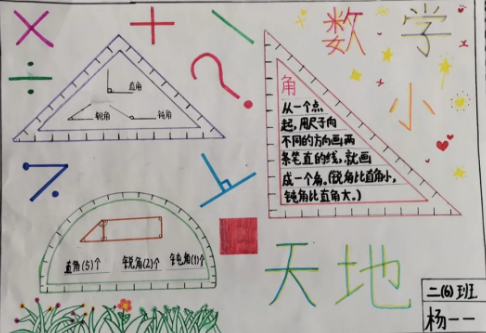 数学
小
天地
直角
锐角
钝角
角
从一个点
起,用尺子向
不同的方向画两
条笔直的线,就画
成一个角。(锐角比直角小,
钝角比直角大。)
直角(5)个 锐角(2)个 钝角(1)个
二(6)班
杨一一